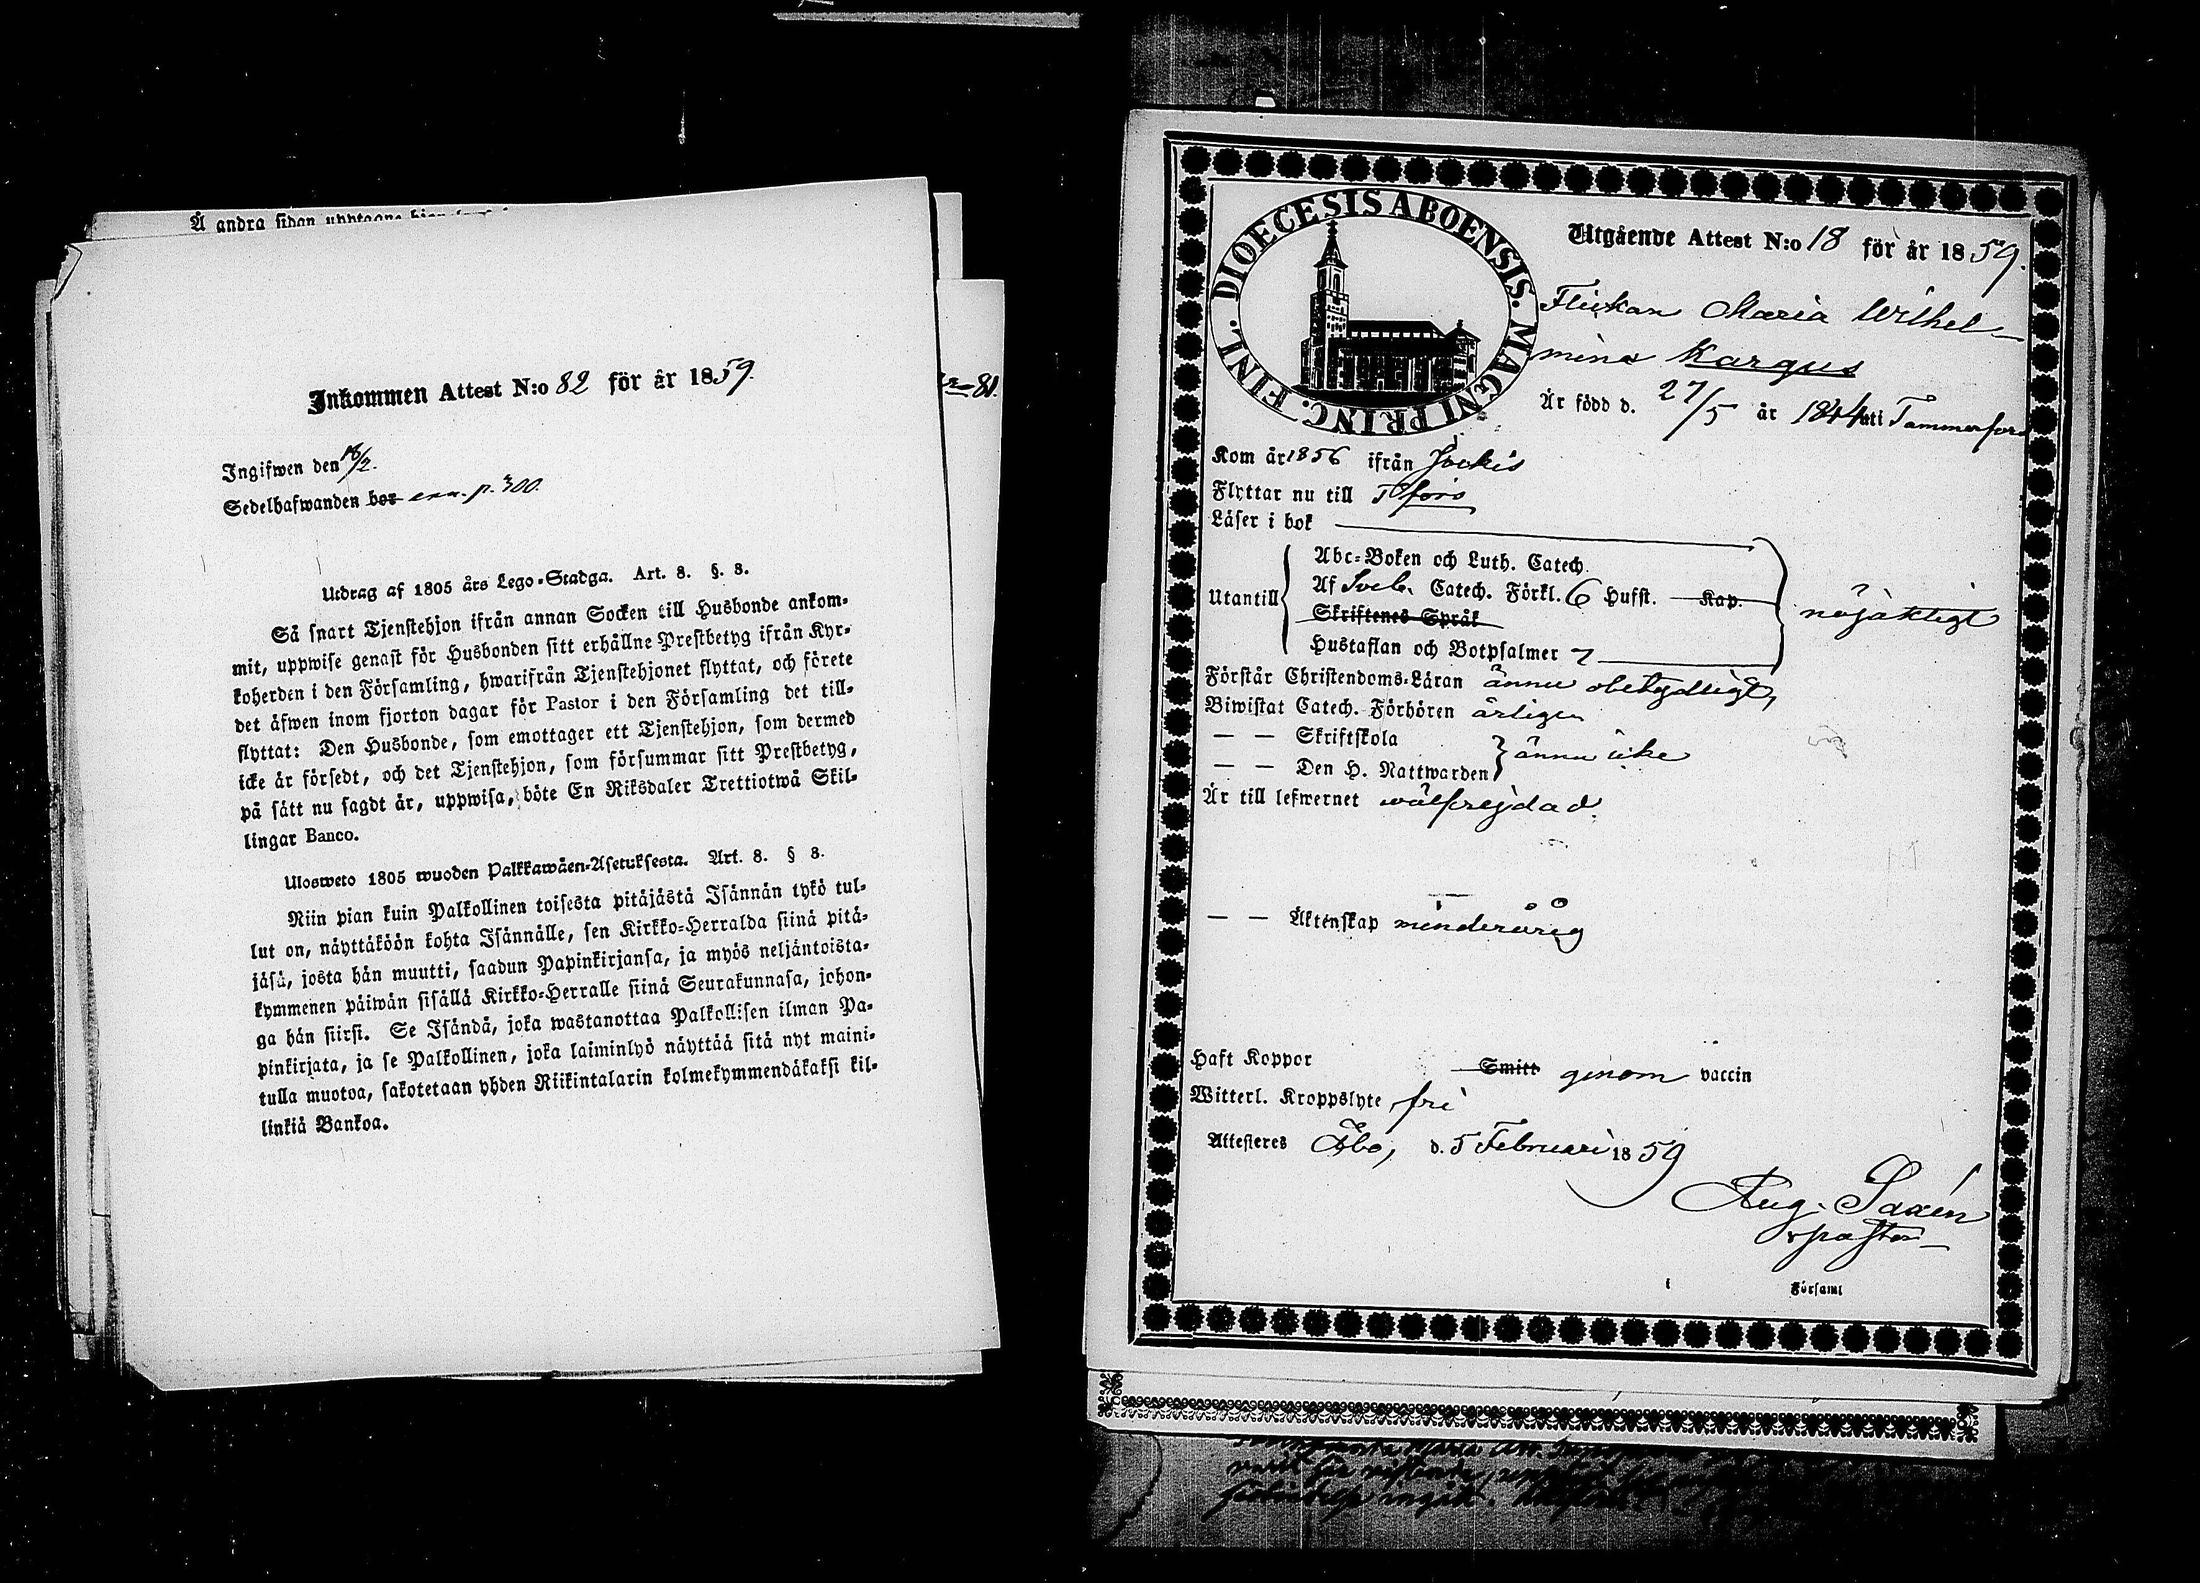 Å andra sidan upptagne
Inkommen Attest N:o 82 för år 1859.
Ingifwen den 18/2.
Sedelhafwanden bor p. 300.
81.
Utdrag af 1805 års Lego-Stadga. Art. 8. §. 8.
Så snart Tjenstehjon ifrån annan Socken till Husbonde ankom-
mit, uppwise genast för Husbonden sitt erhållne Prestbetyg ifrån Kyr-
koherden i den Församling, hwarifrån Tjenstehjonet flyttat, och förete
det äfwen inom fjorton dagar för Pastor i den Församling det till-
flyttat: Den Husbonde, som emottager ett Tjenstehjon, som dermed
icke är försedt, och det Tjenstehjon, som försummar sitt Prestbetyg,
på sätt nu sagdt är, uppwisa, böte En Riksdaler Trettiotwå Skil-
lingar Banco.
Ulosweto 1805 wuoden Palkkawäen-Asetuksesta. Art. 8. § 8.
Niin pian kuin Palkollinen toisesta pitäjästä Isännän tykö tul-
lut on, näyttäköön kohta Isännälle, sen Kirkko-Herralda siinä pitä-
jäsä, josta hän muutti, saadun Papinkirjansa, ja myös neljäntoista-
kymmenen päiwän sisällä Kirkko-Herralle siinä Seurakunnasa, johon-
ga hän siirsi. Se Isändä, joka wastanottaa Palkollisen ilman Pa-
pinkirjata, ja se Palkollinen, joka laiminlyö näyttää sitä nyt maini-
tulla muotoa, sakotetaan yhden Riikintalarin kolmekymmendäkaksi kil-
linkiä Bankoa.
DIOECESIS ABOENSIS. MAGNI PRINC. FINL.
Utgående Attest N:o 18 för år 1859.
Flickan Maria Wilhel-
mina Kargus
Är född d. 27/5 år 1844 uti Tammerfors
Kom år 1856 ifrån Jockis
Flyttar nu till Tfors
Läser i bok
Abc-Boken och Luth. Catech.
Utantill Af Sveb. Catech. Förkl. 6 Hufst. Kap. nöjaktigt
Skriftenes Språk
Hustaflan och Botpsalmer 7
Förstår Christendoms-Läran ännu obetydligt,
Biwistat Catech. Förhören årligen
— — Skriftskola
— — Den H. Nattwarden ännu icke
Är till lefwernet wälfrejdad.
— — Äktenskap minderårig
Haft Koppor Smitt genom vaccin
Witterl. Kroppslyte fri
Attesteres Åbo, d. 5 Februari 1859
Aug. Saxén
pastor
Församl